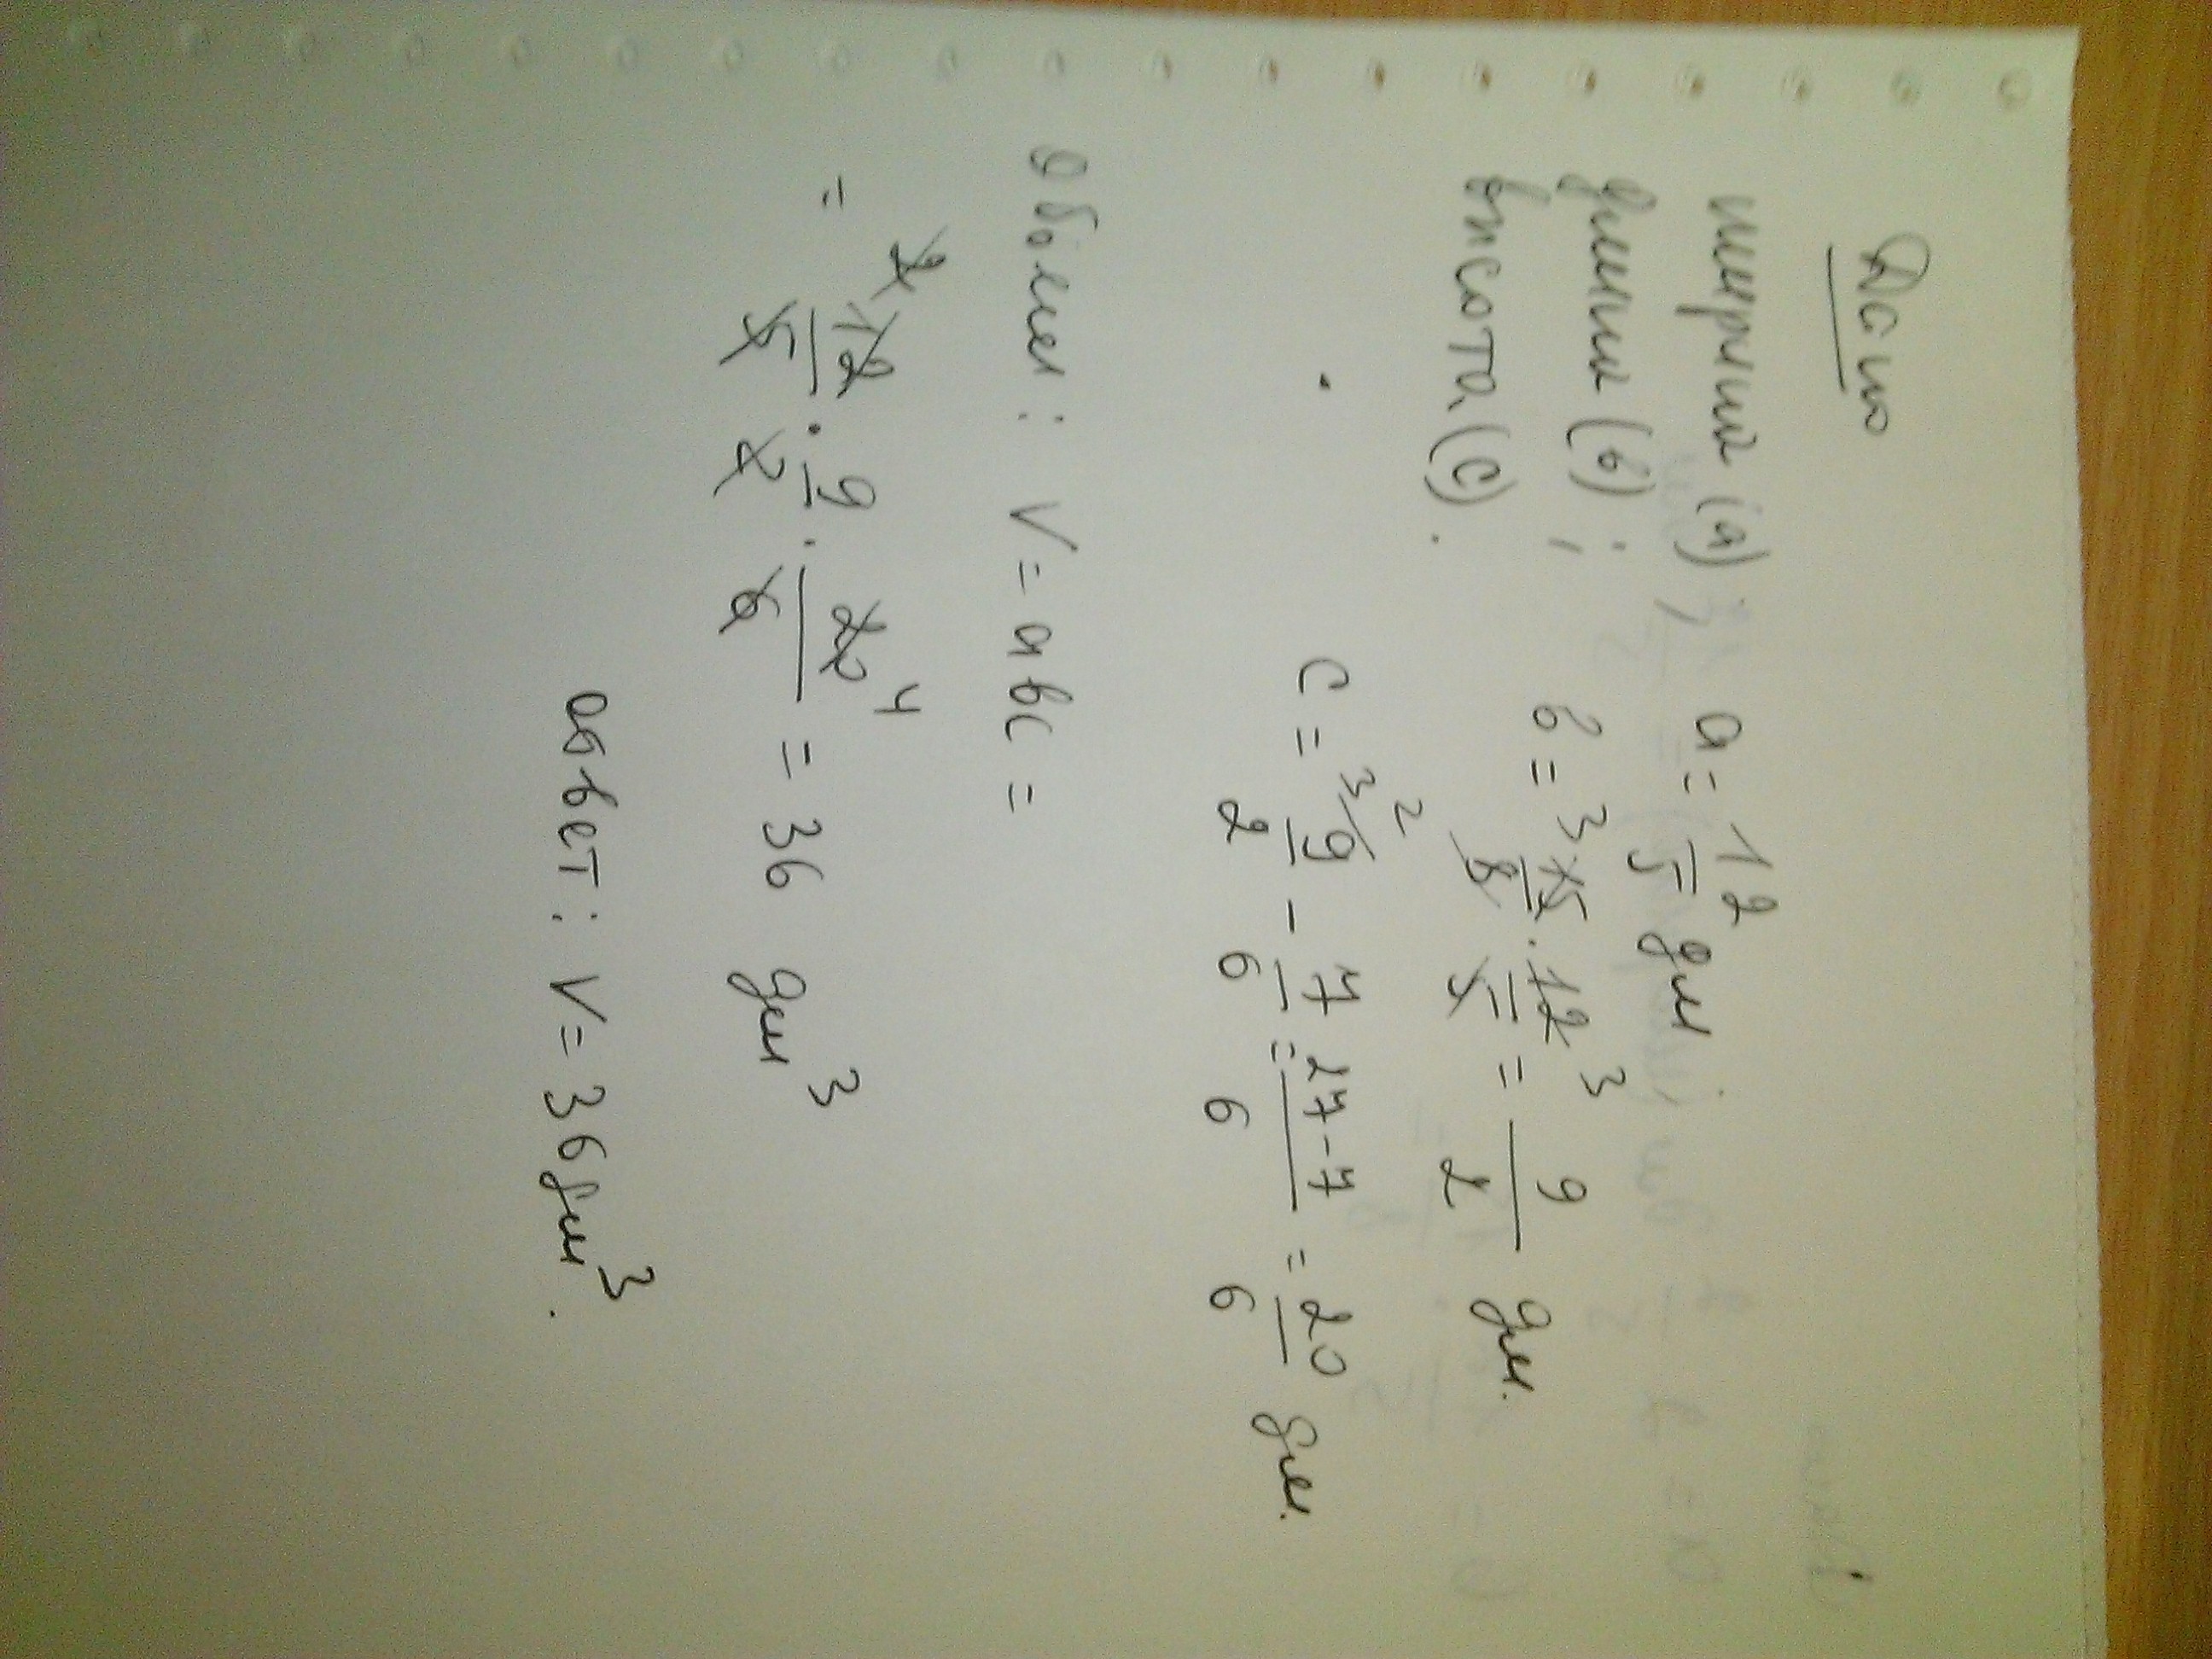 Дано
ширина (a); a = 12/5 дм
длина (b); b = ³15/8 · 12³/5 = 9/2 дм.
высота (c). 2
c = ³/9/2 - 7/6 = 27-7/6 = 20/6 дм.
Объем: V = abc =
= ²12/5 · 9/2 · 20⁴/6 = 36 дм³
ответ: V = 36 дм³.